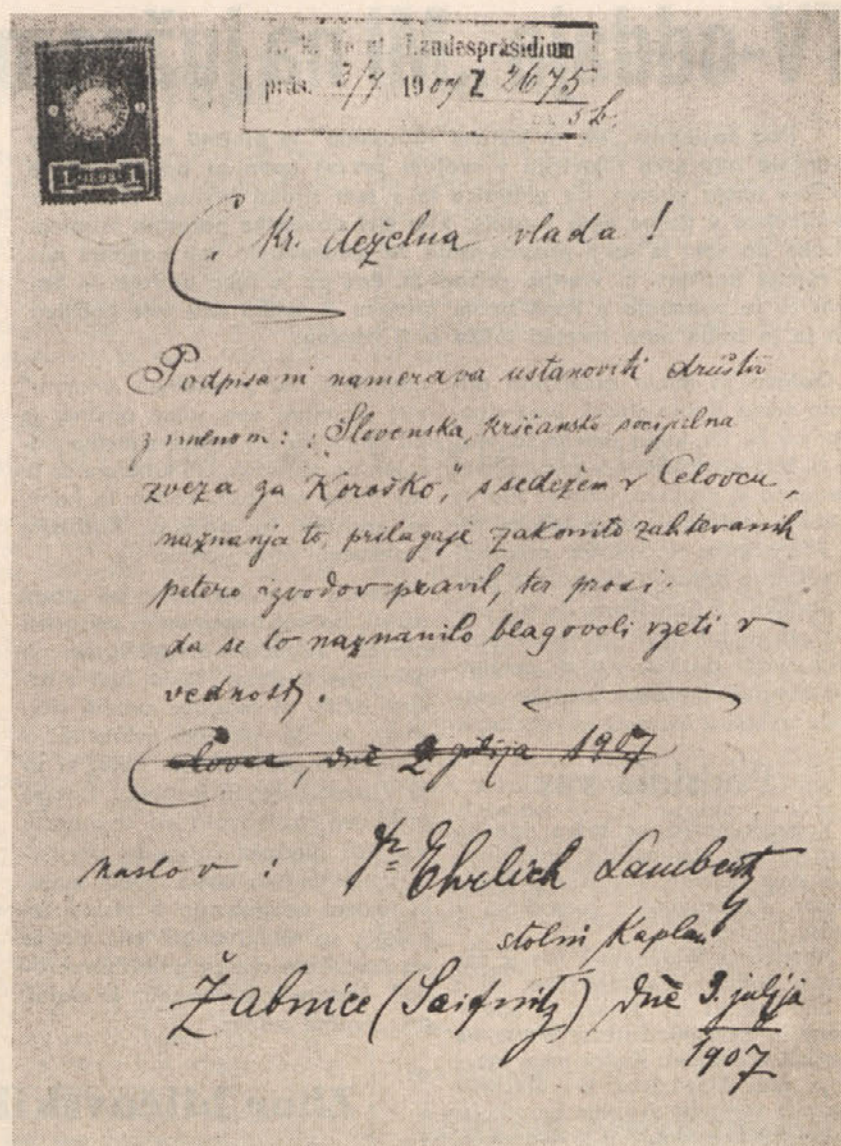 Landespräsidium
präs. 3/7 1907 Z 2675
1 1
C. kr. deželna vlada !
Podpisani namerava ustanoviti društvo
z imenom: „Slovenska krščansko socijalna
zveza za Koroško," s sedežem v Celovcu,
naznanja to, prilagaje zakonito zahtevanih
petero izvodov pravil, ter prosi.
da se to naznanilo blagovoli vzeti v
vednost.
Celovec, dne 2. julija 1907
Naslov : Dr Ehrlich Lambert
stolni kaplan
Žabnice (Saifnitz) dne 3. julija
1907